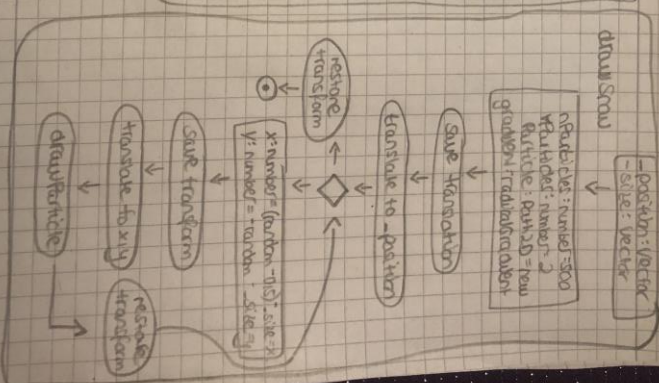 drawSnow
_position: vector
_size: vector
nParticles: number = 500
rParticles: number = 2
Particle: path2D = new
gradient: radialGradient
save translation
translate to _position
restore
transform
x: number = (random - 0.5) · _size = x
y: number = - random · _size = y
save transform
translate to x,y
drawParticle
restore
transform